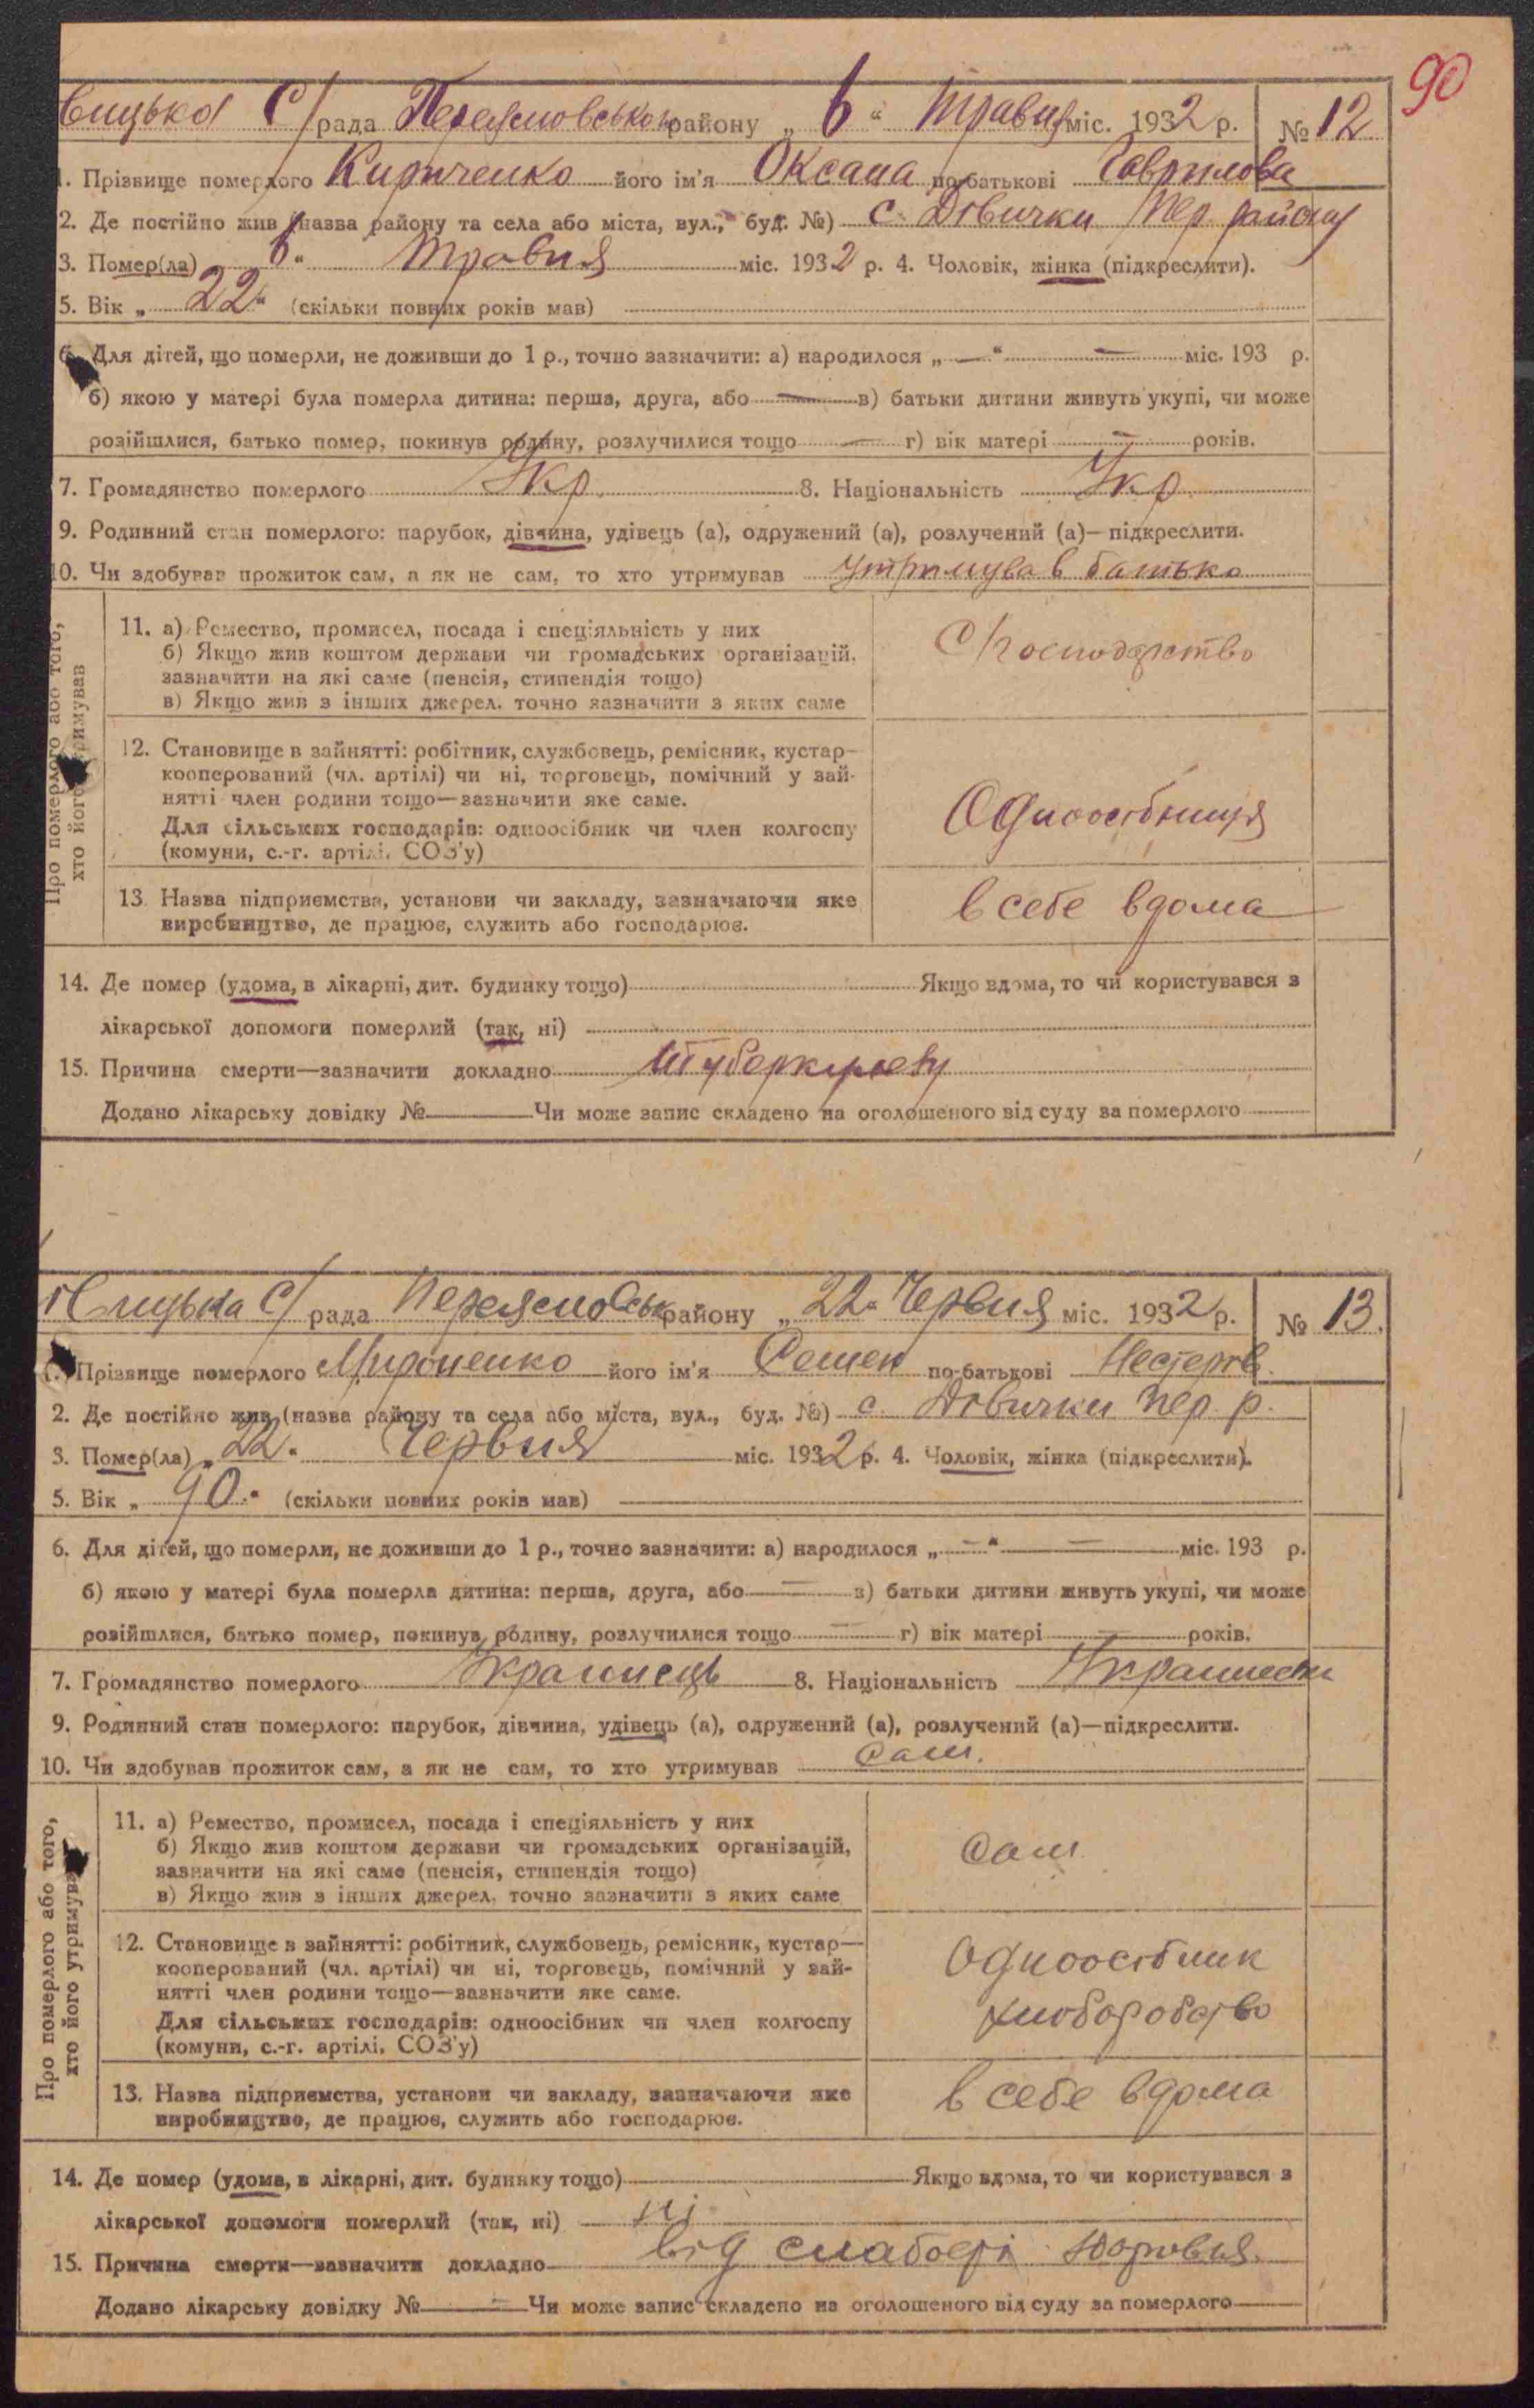 90
вицька С/рада Переясловського району „ 6 “ Травня міс. 1932 р. № 12
1. Прізвище померлого Кириченко його ім'я Оксана по-батькові Гаврилова
2. Де постійно жив (назва району та села або міста, вул., буд. №) с. Дівички Пер. району
3. Помер(ла) 6 “ травня міс. 1932 р. 4. Чоловік, жінка (підкреслити).
5. Вік „ 22 “ (скільки повних років мав)
6. Для дітей, що померли, не доживши до 1 р., точно зазначити: а) народилося „ — “ — міс. 193 р.
б) якою у матері була померла дитина: перша, друга, або — в) батьки дитини живуть укупі, чи може
розійшлися, батько помер, покинув родину, розлучилися тощо — г) вік матері — років.
7. Громадянство померлого Укр. 8. Національність Укр.
9. Родинний стан померлого: парубок, дівчина, удівець (а), одружений (а), розлучений (а)— підкреслити.
10. Чи здобував прожиток сам, а як не сам, то хто утримував утримував батько
Про померлого або того, хто його утримував
11. а) Ремество, промисел, посада і спеціяльність у них
б) Якщо жив коштом держави чи громадських організацій,
зазначити на які саме (пенсія, стипендія тощо)
в) Якщо жив з інших джерел, точно зазначити з яких саме
С/господарство
12. Становище в зайнятті: робітник, службовець, ремісник, кустар—
кооперований (чл. артілі) чи ні, торговець, помічний у зай-
нятті член родини тощо—зазначити яке саме.
Для сільських господарів: одноосібник чи член колгоспу
(комуни, с.-г. артілі, СОЗ'у)
Одноосібниця
13. Назва підприємства, установи чи закладу, зазначаючи яке
виробництво, де працює, служить або господарює.
в себе вдома
14. Де помер (удома, в лікарні, дит. будинку тощо) Якщо вдома, то чи користувався з
лікарської допомоги померлий (так, ні)
15. Причина смерти—зазначити докладно
Додано лікарську довідку № — Чи може запис складено на оголошеного від суду за померлого
вицька С/рада Переясловськ району „ 22 “ Червня міс. 1932 р. № 13.
1. Прізвище померлого Мироненко його ім'я Семен по-батькові Нестеров.
2. Де постійно жив (назва району та села або міста, вул., буд. №) с. Дівички Пер. р.
3. Помер(ла) „ 22 “ Червня міс. 1932 р. 4. Чоловік, жінка (підкреслити).
5. Вік „ 90 “ (скільки повних років мав)
6. Для дітей, що померли, не доживши до 1 р., точно зазначити: а) народилося „ — “ — міс. 193 р.
б) якою у матері була померла дитина: перша, друга, або — в) батьки дитини живуть укупі, чи може
розійшлися, батько помер, покинув родину, розлучилися тощо — г) вік матері — років.
7. Громадянство померлого Українець 8. Національність
9. Родинний стан померлого: парубок, дівчина, удівець (а), одружений (а), розлучений (а)—підкреслити.
10. Чи здобував прожиток сам, а як не сам, то хто утримував сам.
Про померлого або того, хто його утримував
11. а) Ремество, промисел, посада і спеціяльність у них
б) Якщо жив коштом держави чи громадських організацій,
зазначити на які саме (пенсія, стипендія тощо)
в) Якщо жив з інших джерел, точно зазначити з яких саме
сам
12. Становище в зайнятті: робітник, службовець, ремісник, кустар—
кооперований (чл. артілі) чи ні, торговець, помічний у зай-
нятті член родини тощо—зазначити яке саме.
Для сільських господарів: одноосібник чи член колгоспу
(комуни, с.-г. артілі, СОЗ'у)
Одноосібник
хліборобство
13. Назва підприємства, установи чи закладу, зазначаючи яке
виробництво, де працює, служить або господарює.
в себе вдома
14. Де помер (удома, в лікарні, дит. будинку тощо) Якщо вдома, то чи користувався з
лікарської допомоги померлий (так, ні) ні
15. Причина смерти—зазначити докладно від слабості здоровья.
Додано лікарську довідку № — Чи може запис складено на оголошеного від суду за померлого